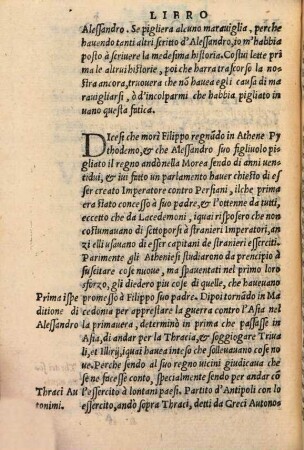 LIBRO
Alessandro. Se pigliera alcuno marauiglia, perche
hauendo tanti altri scritto d'Alessandro, io m'habbia
posto à scriuere la medesima historia. Costui lette pri
ma le altrui historie, poi che harra trascorso la no
stra ancora, truouera che nõ hauea egli causa di ma
rauigliarsi, ò d'incolparmi che habbia pigliato in
uano questa fatica.
DIcesi che morì Filippo regnãdo in Athene Py
thodemo, & che Alessandro suo figliuolo pi
gliato il regno andò nella Morea sendo di anni uen
tidui, & iui fatto un parlamento hauer chiesto di es
ser creato Imperatore contro Persiani, ilche prima
era stato concesso à suo padre, & l'ottenne da tutti,
eccetto che da Lacedemoni, iquai risposero che non
costumauano di sottoporsi à stranieri Imperatori, an
zi elli usauano di esser capitani de stranieri esserciti.
Parimente gli Atheniesi studiarono da precipio à
suscitare cose nuoue, ma spauentati nel primo loro
sforzo, gli diedero piu cose di quelle, che haueuano
Prima ispe promesso à Filippo suo padre. Dipoi tornãdo in Ma
ditione di cedonia per apprestare la guerra contro l'Asia nel
Alessandro la primauera, determinò in prima che passasse in
Asia, di andar per la Thracia, & soggiogare Triua
li, et Illirij, iquai hauea inteso che solleuauano cose no
ue. Perche sendo al suo regno uicini giudicaua che
se ne facesse conto, specialmente sendo per andar cõ
Thraci Au l'essercito à lontani paesi. Partito d'Antipoli con lo
tonimi. essercito, andò sopra Thraci, detti da Greci Autonos